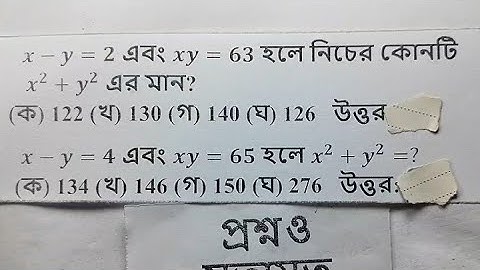 x − y = 2 এবং xy = 63 হলে নিচের কোনটি
x² + y² এর মান?
(ক) 122 (খ) 130 (গ) 140 (ঘ) 126 উত্তর
x − y = 4 এবং xy = 65 হলে x² + y² =?
(ক) 134 (খ) 146 (গ) 150 (ঘ) 276 উত্তর:
প্রশ্ন ও